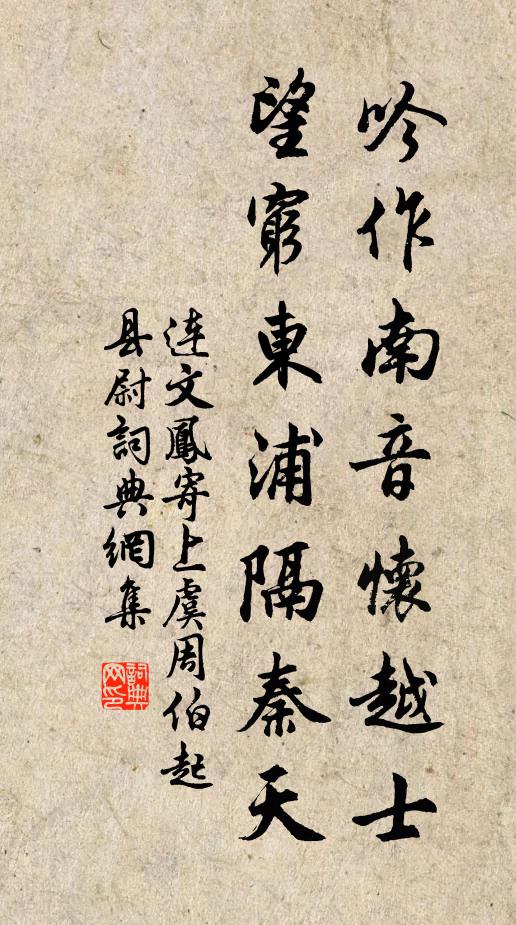 吟作南音懷越士
望窮東浦隔秦天
連文鳳寄上虞周伯起
县尉詞典網集
詞典网印